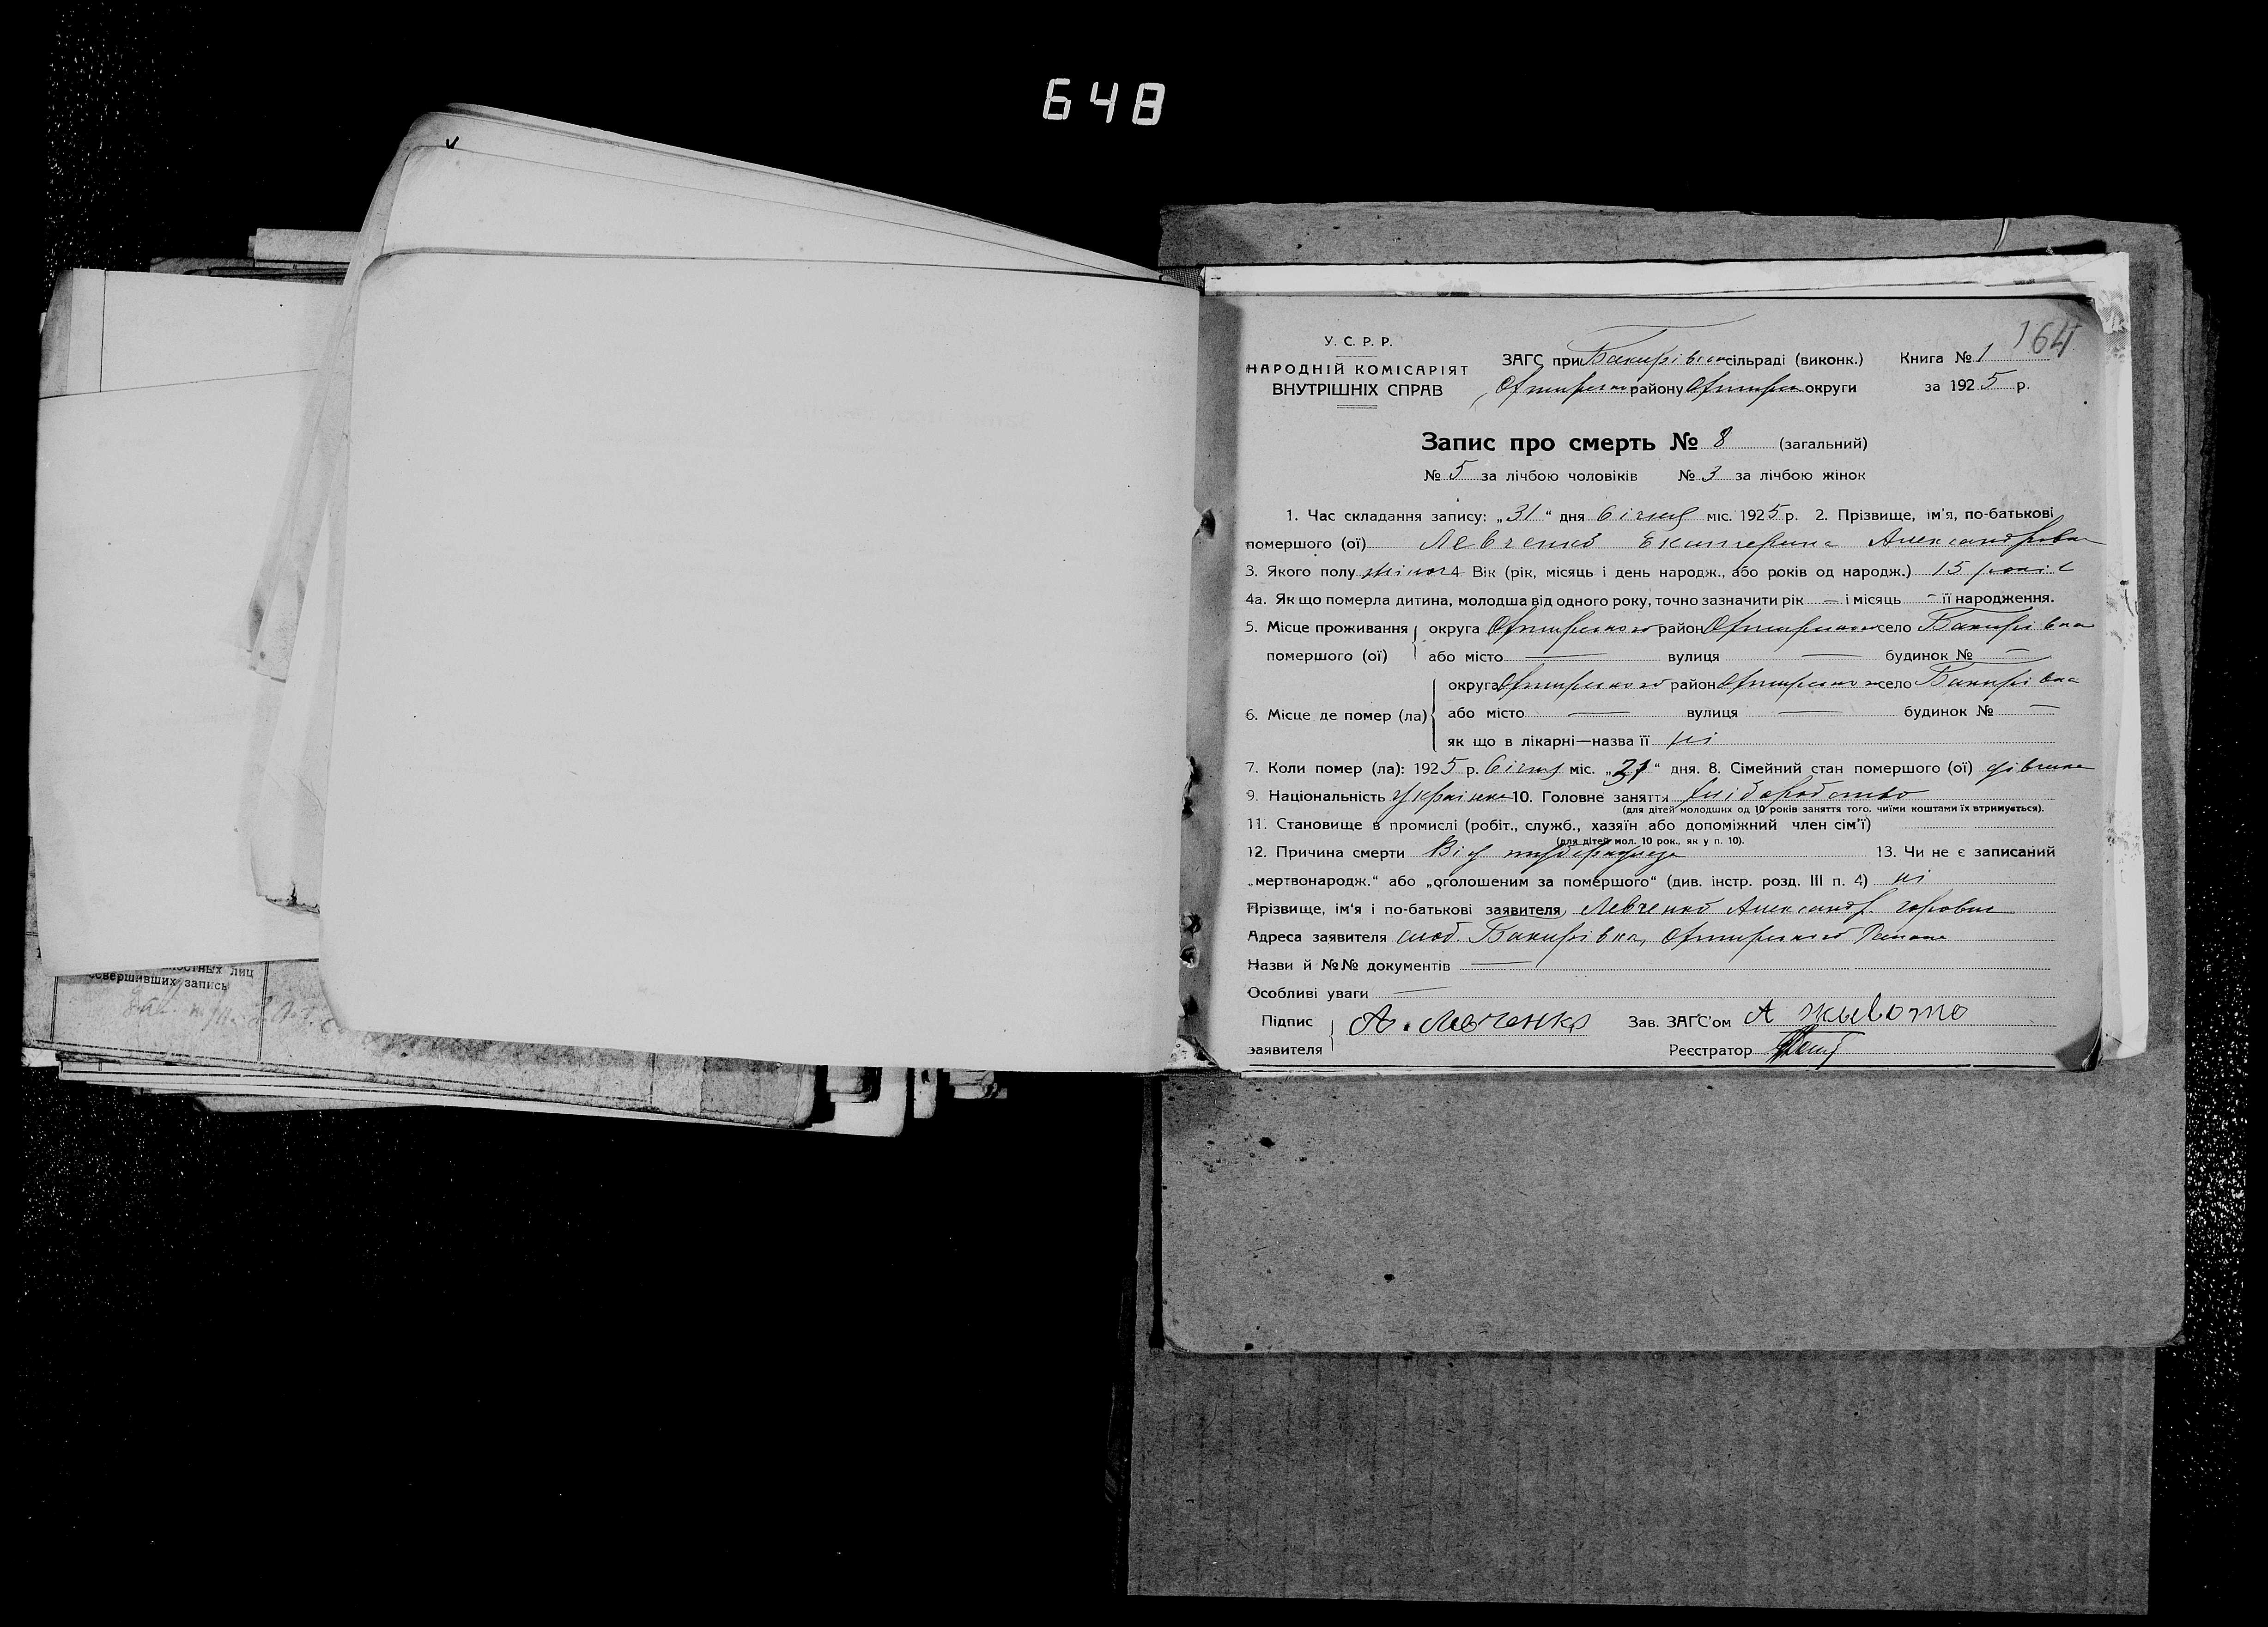 648
164
У. С. Р. Р.
НАРОДНІЙ КОМІСАРІЯТ
ВНУТРІШНІХ СПРАВ
ЗАГС при сільраді (виконк.)
району округи
Книга № 1
за 1925 р.
Запис про смерть № 8 (загальний)
№ 5 за лічбою чоловіків № 3 за лічбою жінок
1. Час складання запису: „31“ дня січня міс. 1925 р. 2. Прізвище, ім'я, по-батькові
помершого (ої) Левченко Екатерина Александровна
3. Якого полу жіноч 4 Вік (рік, місяць і день народж., або років од народж.) 15 років
4а. Як що померла дитина, молодша від одного року, точно зазначити рік — і місяць — її народження.
5. Місце проживання округа Охтирського район Охтирського село Бакирівка
помершого (ої) або місто — вулиця — будинок № —
округа Охтирського район Охтирського село Бакирівка
6. Місце де помер (ла) або місто — вулиця — будинок № —
як що в лікарні—назва її ні
7. Коли помер (ла): 1925 р. січня міс. „31“ дня. 8. Сімейний стан помершого (ої) дівчина
9. Національність Українка 10. Головне заняття хліборобство
(для дітей молодших од 10 років заняття того, чиїми коштами їх втримується).
11. Становище в промислі (робіт., служб., хазяїн або допоміжний член сім'ї)
(для дітей мол. 10 рок., як у п. 10).
12. Причина смерти Від туберкульоза 13. Чи не є записаний
„мертвонародж.“ або „оголошеним за помершого“ (див. інстр. розд. III п. 4) ні
Прізвище, ім'я і по-батькові заявителя Левченко Александр
Адреса заявителя слоб. Бакирівка, Охтирського района
Назви й №№ документів —
Особливі уваги —
Підпис
заявителя
А. Левченко
Зав. ЗАГС'ом А живото
Реєстратор
лиц
совершивших запись